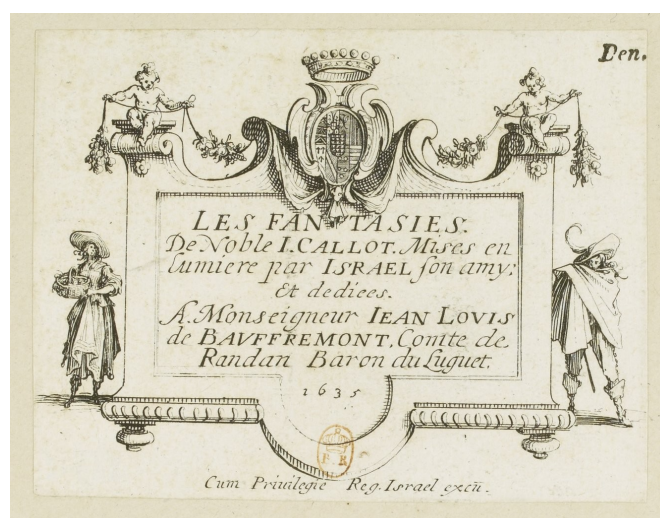 Den.
LES FANTASIES.
De Noble I. CALLOT. Mises en
lumiere par ISRAEL son amy;
Et dediees.
A. Monseigneur IEAN LOVIS
de BAVFFREMONT, Comte de
Randan Baron du Luguet.
1635
Cum Privilegie Reg. Israel excũ.